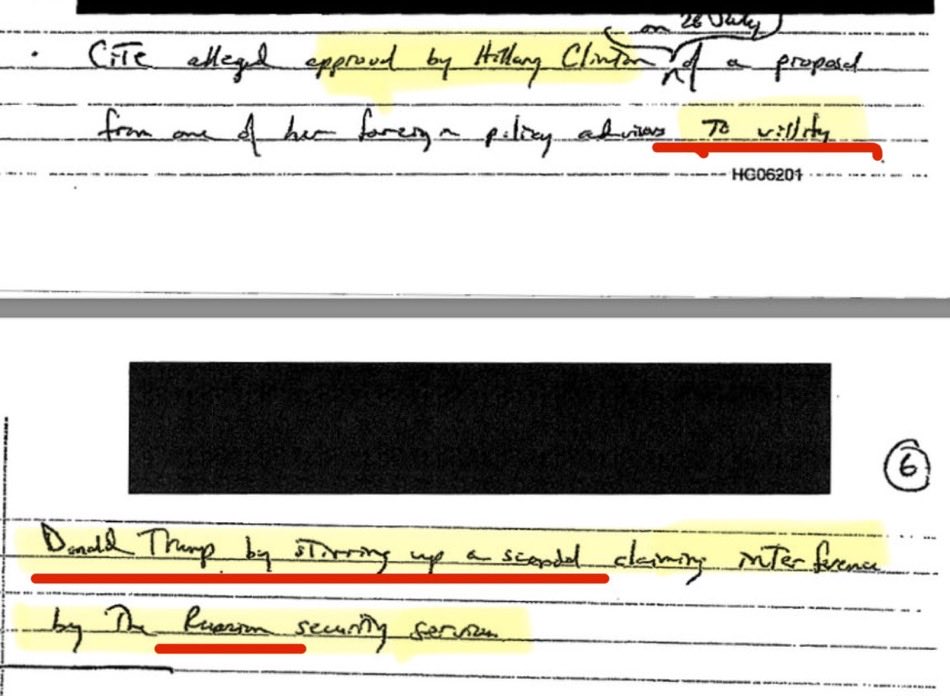 on 28 July
• CITE alleged approval by Hillary Clinton of a proposal
from one of her foreign policy advisors To villify
HG06201
6
Donald Trump by stirring up a scandal claiming interference
by The Russian security services